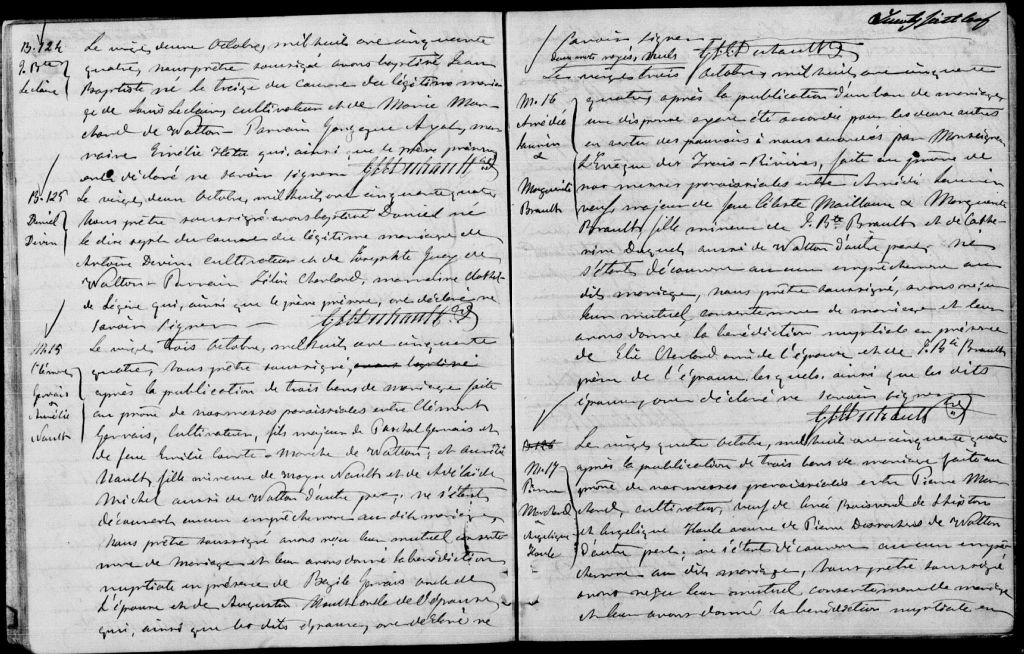 B. 124
J. Bte
Leclaire
Le vingt deux Octobre, mil huit cent cinquante
quatre, nous prêtre soussigné avons baptisé Jean
Baptiste né le treize du courant du légitime maria-
ge de Louis Leclaire, cultivateur et de Marie Mar-
chand de Wotton - Parrain Gonzague Ayot, mar-
raine Emélie Hotte qui, ainsi que le père présent
ont déclaré ne savoir signer
B. 125
Daniel
Devin
Le vingt deux Octobre, mil huit cent cinquante quatre
nous prêtre soussigné avons baptisé Daniel né
le dix sept du courant du légitime mariage de
Antoine Devin cultivateur et de
Wotton - Parrain Charland, marraine
qui, ainsi que le père présent, ont déclaré ne
savoir signer
M. 15
Clément
Gervais
&
Aurélie
Nault
Le vingt trois Octobre, mil huit cent cinquante
quatre, nous prêtre soussigné,
après la publication de trois bans de mariage faite
au prône de nos messes paroissiales entre Clément
Gervais, Cultivateur, fils majeur de Paschal Gervais et
de feue Emélie de Wotton, et Aurélie
Nault, fille mineure de Nault et de Adélaïde
Michel aussi de Wotton d'autre part, ne s'étant
découvert aucun empêchement au dit mariage,
nous prêtre soussigné avons reçu leur mutuel consente-
ment de mariage et leur avons donné la bénédiction
nuptiale en présence de Bazile Gervais oncle de
l'époux et de Augustin Nault oncle de l'épouse,
qui, ainsi que les dits époux, ont déclaré ne
Twenty sixth leaf
savoir signer
Deux mots rayés, nuls
M. 16
Amédée
&
Marguerite
Brault
Le vingt trois Octobre, mil huit cent cinquante
quatre, après la publication d'un ban de mariage,
une dispense ayant été accordée pour les deux autres
en vertu des pouvoirs à nous accordés par Monseigneur
L'Evêque des Trois-Rivières, faite au prône de
nos messes paroissiales entre Amédée
veuf majeur de feue Céleste Mailloux & Marguerite
Brault fille mineure de J. Bte Brault et de Cathe-
rine Duquet aussi de Wotton d'autre part, ne
s'étant découvert aucun empêchement au
dit mariage, nous prêtre soussigné, avons reçu
leur mutuel consentement de mariage et leur
avons donné la bénédiction nuptiale en présence
de Elie Charland ami de l'époux et de J. Bte Brault
père de l'épouse, lesquels, ainsi que les dits
époux, ont déclaré ne savoir signer
B. 126
M. 17
Pierre
Marchand
&
Angélique
Houle
Le vingt quatre Octobre, mil huit cent cinquante quatre
après la publication de trois bans de mariage faite au
prône de nos messes paroissiales entre Pierre Mar-
chand, cultivateur, veuf de de Shipton
et Angélique Houle veuve de Pierre Desrochers de Wotton
d'autre part, ne s'étant découvert aucun empê-
chement au dit mariage, nous prêtre soussigné
avons reçu leur mutuel consentement de mariage
et leur avons donné la bénédiction nuptiale en